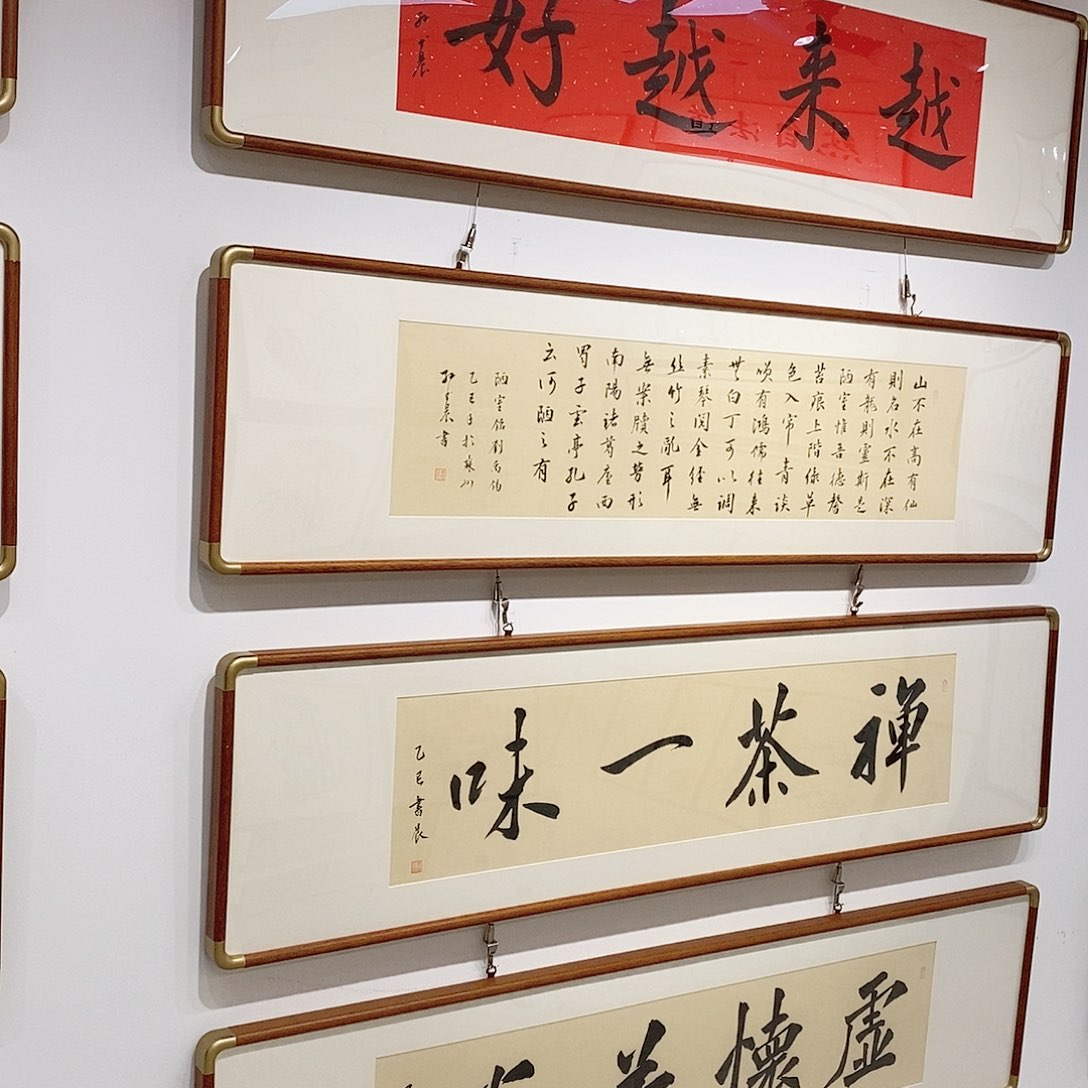 越来越好
山不在高有仙
則名水不在深
有龍則靈斯是
陋室惟吾德馨
苔痕上階緑草
色入帘青談
咲有鴻儒往来
無白丁可以調
素琴閱金經無
絲竹之亂耳
無案牘之勞形
南陽諸葛廬西
蜀子雲亭孔子
云何陋之有
陋室銘劉禹錫
禅茶一味
乙巳書晨
虚懷